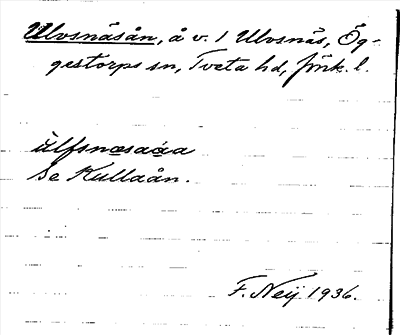 Ulvsnäsån, å v. 1 Ulvsnäs, Ög-
gestorps sn, Tveta hd, Jönk. l.
ùlfsnæsaáa
Se Kullaån.
F. Neij 1936.